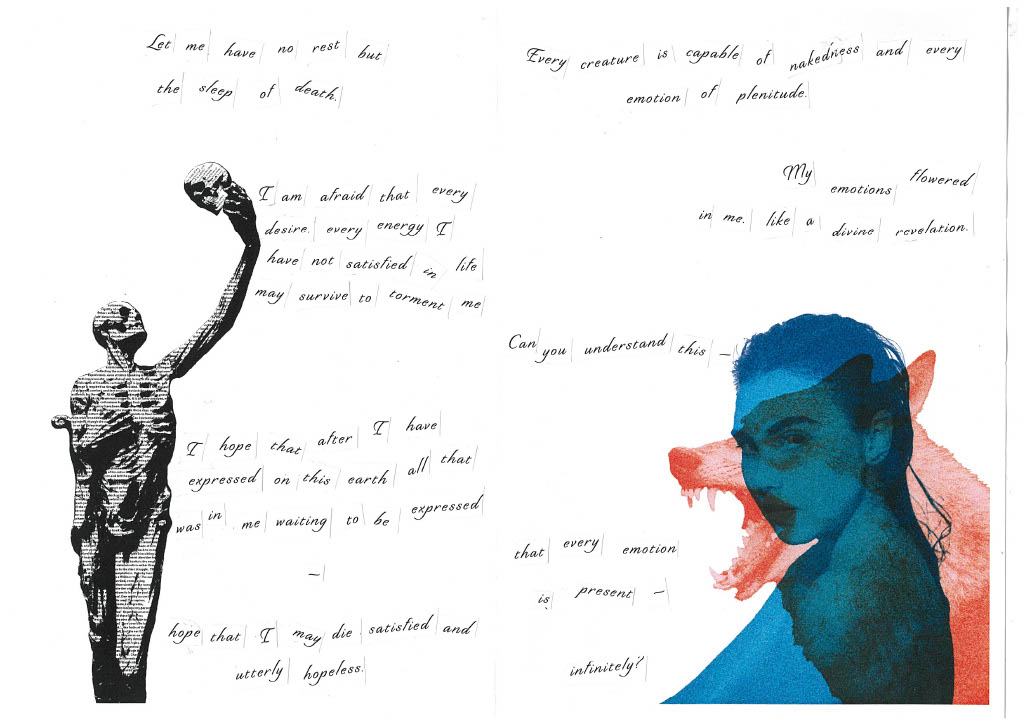 Let me have no rest but
the sleep of death.
I am afraid that every
desire. every energy I
have not satisfied in life
may survive to torment me
I hope that after I have
expressed on this earth all that
was in me waiting to be expressed
—
hope that I may die satisfied and
utterly hopeless.
Every creature is capable of nakedness and every
emotion of plenitude.
My emotions flowered
in me. like a divine revelation.
Can you understand this —
that every emotion
is present —
infinitely?